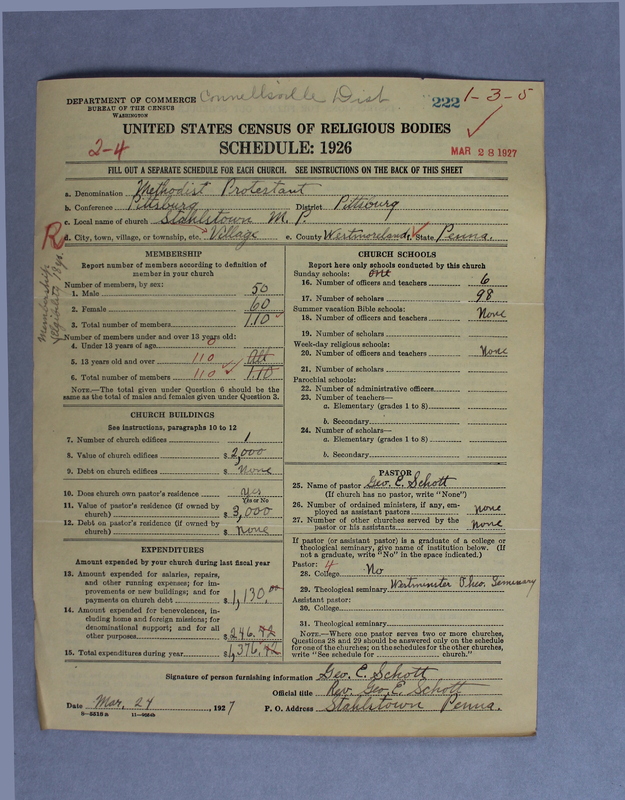 DEPARTMENT OF COMMERCE Connellsville Dist 222 1-3-5
BUREAU OF THE CENSUS
WASHINGTON
UNITED STATES CENSUS OF RELIGIOUS BODIES
2-4 SCHEDULE: 1926 MAR 28 1927
FILL OUT A SEPARATE SCHEDULE FOR EACH CHURCH. SEE INSTRUCTIONS ON THE BACK OF THIS SHEET
a. Denomination Methodist Protestant
b. Conference Pittsburg District Pittsburg
c. Local name of church Stahlstown M. P.
R d. City, town, village, or township, etc. Village e. County Westmoreland f. State Penna.
MEMBERSHIP
Report number of members according to definition of
member in your church
Number of members, by sex:
1. Male 50
2. Female 60
3. Total number of members 110
Number of members under and over 13 years old:
4. Under 13 years of age 0
5. 13 years old and over 110 All
6. Total number of members 110 110
NOTE.—The total given under Question 6 should be the
same as the total of males and females given under Question 3.
CHURCH BUILDINGS
See instructions, paragraphs 10 to 12
7. Number of church edifices 1
8. Value of church edifices $ 2,000
9. Debt on church edifices $ None
10. Does church own pastor's residence yes
Yes or No
11. Value of pastor's residence (if owned by
church) $ 3,000
12. Debt on pastor's residence (if owned by
church) $ none
EXPENDITURES
Amount expended by your church during last fiscal year
13. Amount expended for salaries, repairs,
and other running expenses; for im-
provements or new buildings; and for
payments on church debt $ 1,130.00
14. Amount expended for benevolences, in-
cluding home and foreign missions; for
denominational support; and for all
other purposes $ 246.42
15. Total expenditures during year $ 1,376.42
CHURCH SCHOOLS
Report here only schools conducted by this church
Sunday schools: one
16. Number of officers and teachers 6
17. Number of scholars 98
Summer vacation Bible schools:
18. Number of officers and teachers None
19. Number of scholars
Week-day religious schools:
20. Number of officers and teachers None
21. Number of scholars
Parochial schools:
22. Number of administrative officers
23. Number of teachers—
a. Elementary (grades 1 to 8)
b. Secondary
24. Number of scholars—
a. Elementary (grades 1 to 8)
b. Secondary
PASTOR
25. Name of pastor Geo. E. Schott
(If church has no pastor, write "None")
26. Number of ordained ministers, if any, em-
ployed as assistant pastors none
27. Number of other churches served by the
pastor or his assistants none
If pastor (or assistant pastor) is a graduate of a college or
theological seminary, give name of institution below. (If
not a graduate, write "No" in the space indicated.)
Pastor: 4
28. College No
29. Theological seminary Westminster Theo. Seminary
Assistant pastor:
30. College
31. Theological seminary
NOTE.—Where one pastor serves two or more churches,
Questions 28 and 29 should be answered only on the schedule
for one of the churches; on the schedules for the other churches,
write "See schedule for church."
Signature of person furnishing information Geo. E. Schott
Official title Rev. Geo. E. Schott
Date Mar. 24, 1927 P. O. Address Stahlstown Penna.